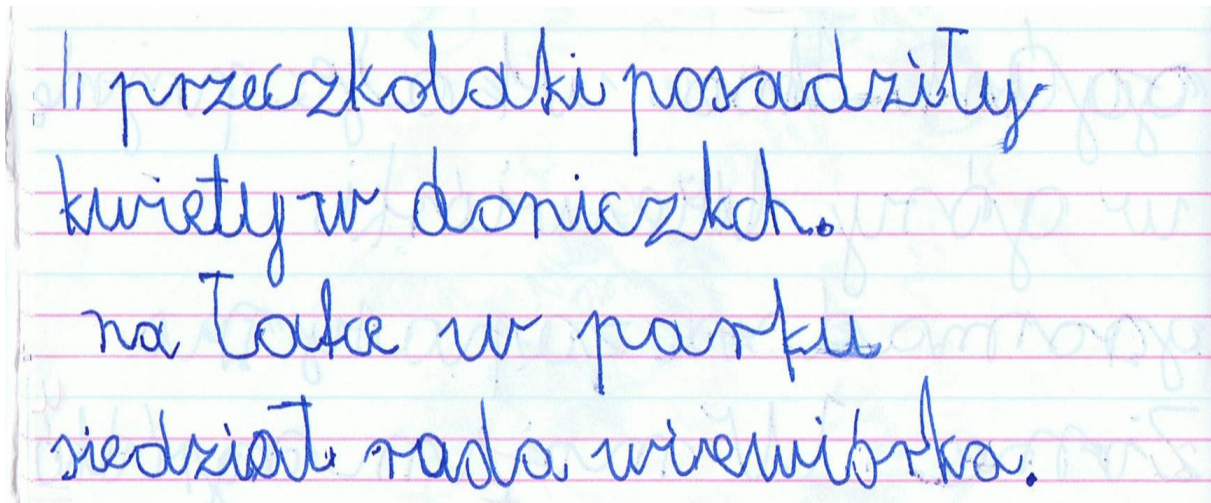 przeczkolaki posadziły
kwiety w doniczkch.
na łatce w parku
siedział rada wirewiórka.